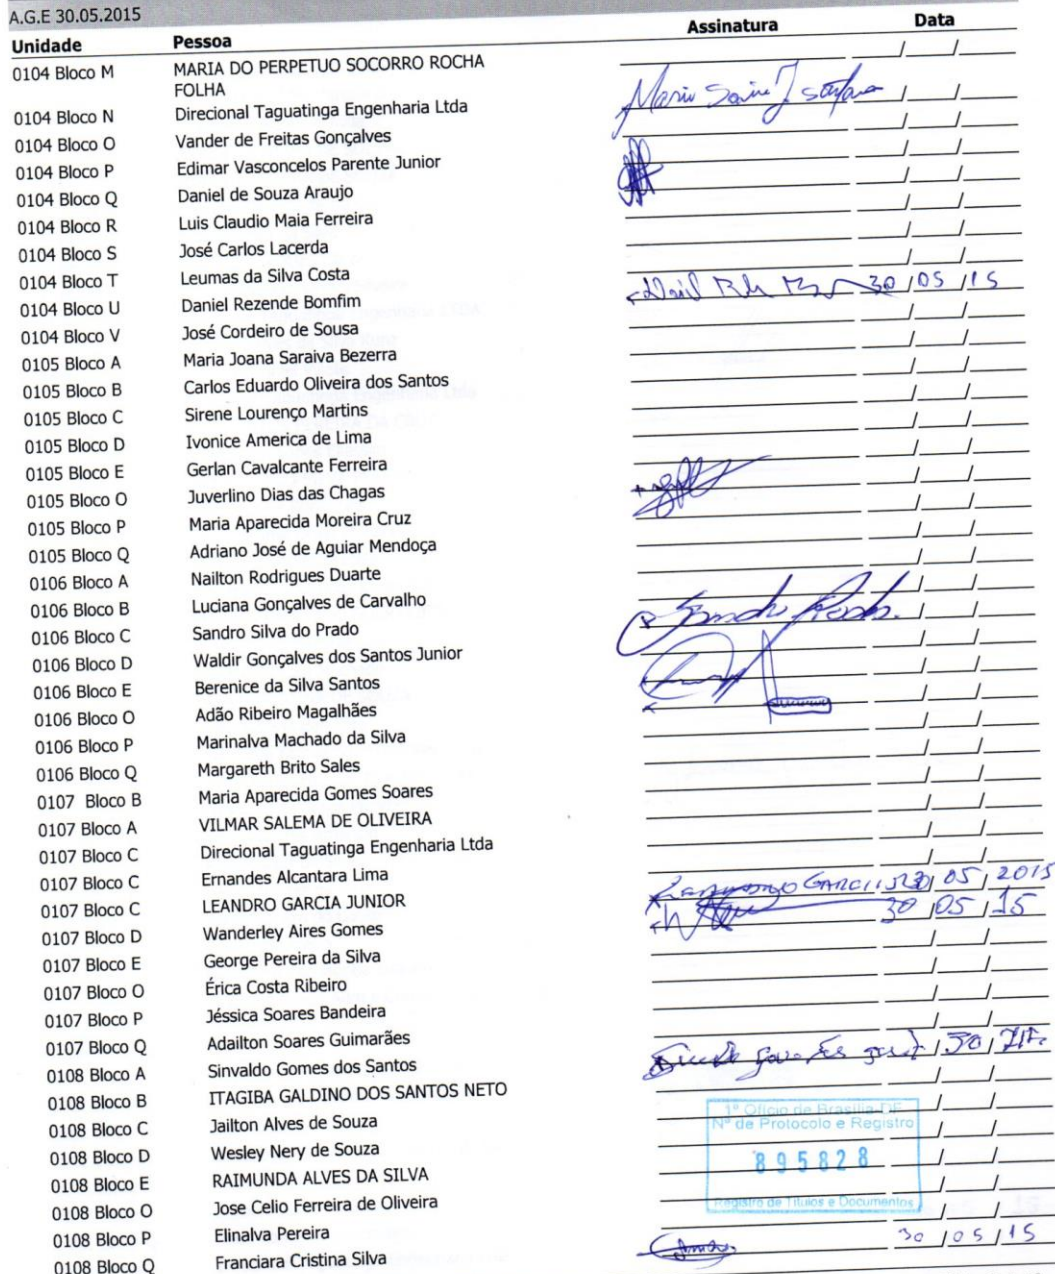 A.G.E 30.05.2015
Unidade Pessoa Assinatura Data
0104 Bloco M MARIA DO PERPETUO SOCORRO ROCHA FOLHA
0104 Bloco N Direcional Taguatinga Engenharia Ltda
0104 Bloco O Vander de Freitas Gonçalves
0104 Bloco P Edimar Vasconcelos Parente Junior
0104 Bloco Q Daniel de Souza Araujo
0104 Bloco R Luis Claudio Maia Ferreira
0104 Bloco S José Carlos Lacerda
0104 Bloco T Leumas da Silva Costa
0104 Bloco U Daniel Rezende Bomfim 30/05/15
0104 Bloco V José Cordeiro de Sousa
0105 Bloco A Maria Joana Saraiva Bezerra
0105 Bloco B Carlos Eduardo Oliveira dos Santos
0105 Bloco C Sirene Lourenço Martins
0105 Bloco D Ivonice America de Lima
0105 Bloco E Gerlan Cavalcante Ferreira
0105 Bloco O Juverlino Dias das Chagas
0105 Bloco P Maria Aparecida Moreira Cruz
0105 Bloco Q Adriano José de Aguiar Mendoça
0106 Bloco A Nailton Rodrigues Duarte
0106 Bloco B Luciana Gonçalves de Carvalho
0106 Bloco C Sandro Silva do Prado
0106 Bloco D Waldir Gonçalves dos Santos Junior
0106 Bloco E Berenice da Silva Santos
0106 Bloco O Adão Ribeiro Magalhães
0106 Bloco P Marinalva Machado da Silva
0106 Bloco Q Margareth Brito Sales
0107 Bloco B Maria Aparecida Gomes Soares
0107 Bloco A VILMAR SALEMA DE OLIVEIRA
0107 Bloco C Direcional Taguatinga Engenharia Ltda
0107 Bloco C Ernandes Alcantara Lima
0107 Bloco C LEANDRO GARCIA JUNIOR 05/2015
0107 Bloco D Wanderley Aires Gomes 30/05/15
0107 Bloco E George Pereira da Silva
0107 Bloco O Érica Costa Ribeiro
0107 Bloco P Jéssica Soares Bandeira
0107 Bloco Q Adailton Soares Guimarães
0108 Bloco A Sinvaldo Gomes dos Santos
0108 Bloco B ITAGIBA GALDINO DOS SANTOS NETO
0108 Bloco C Jailton Alves de Souza
0108 Bloco D Wesley Nery de Souza
0108 Bloco E RAIMUNDA ALVES DA SILVA
0108 Bloco O Jose Celio Ferreira de Oliveira
0108 Bloco P Elinalva Pereira
0108 Bloco Q Franciara Cristina Silva 30/05/15
1º Ofício de Brasília-DF
Nº de Protocolo e Registro
895828
Registro de Títulos e Documentos